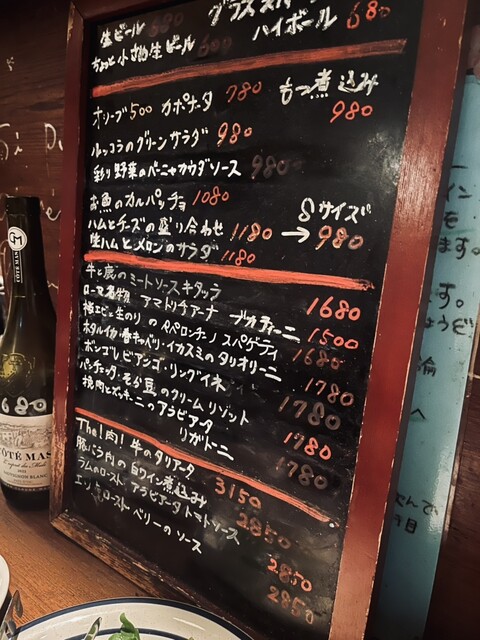 生ビール 680
グラススパ
ちょっと小さめ生ビール 600
ハイボール 680
オリーブ 500 カポナータ 780
もつ煮込み 980
ルッコラのグリーンサラダ 980
彩り野菜のバーニャカウダソース 980
お魚のカルパッチョ 1080
ハムとチーズの盛り合わせ 1180 → Sサイズ 980
生ハムとメロンのサラダ 1180
牛と鹿のミートソースキタッラ 1680
ローマ名物 アマトリチャーナ ブカティーニ 1500
桜エビと生のりのペペロンチーノ スパゲティ 1680
ホタルイカ・春キャベツ・イカスミのタリオリーニ 1780
ボンゴレビアンコ・リングイネ 1780
パンチェッタ・そら豆のクリームリゾット 1780
挽肉とズッキーニのアラビアータ リガトーニ 1780
The!肉! 牛のタリアータ 3150
豚ほう肉の白ワイン煮込み 2850
ラムのロースト アラビアータトマトソース 2850
ロースト ベリーのソース 2850
680
CÔTÉ MAS
SAUVIGNON BLANC